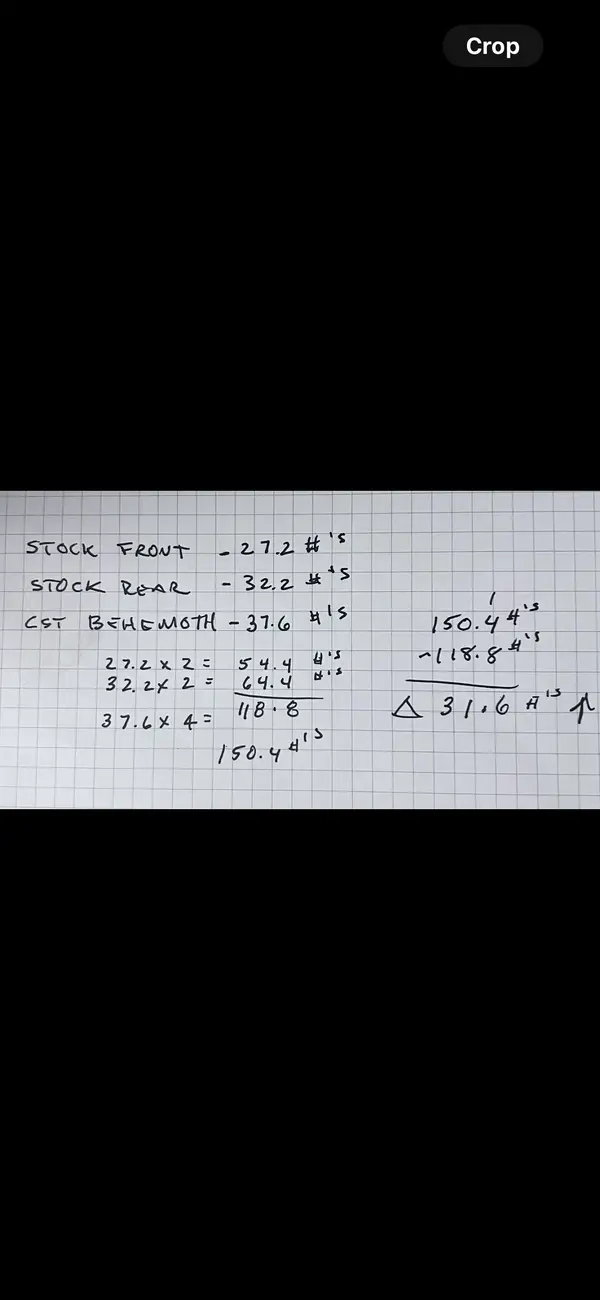 Crop
STOCK FRONT - 27.2 #'S
STOCK REAR - 32.2 #'S
CST BEHEMOTH - 37.6 #'S
27.2 x 2 = 54.4 #'S
32.2 x 2 = 64.4 #'S
118.8
37.6 x 4 =
150.4 #'S
1
150.4 #'S
-118.8 #'S
Δ 31.6 #'S ↑